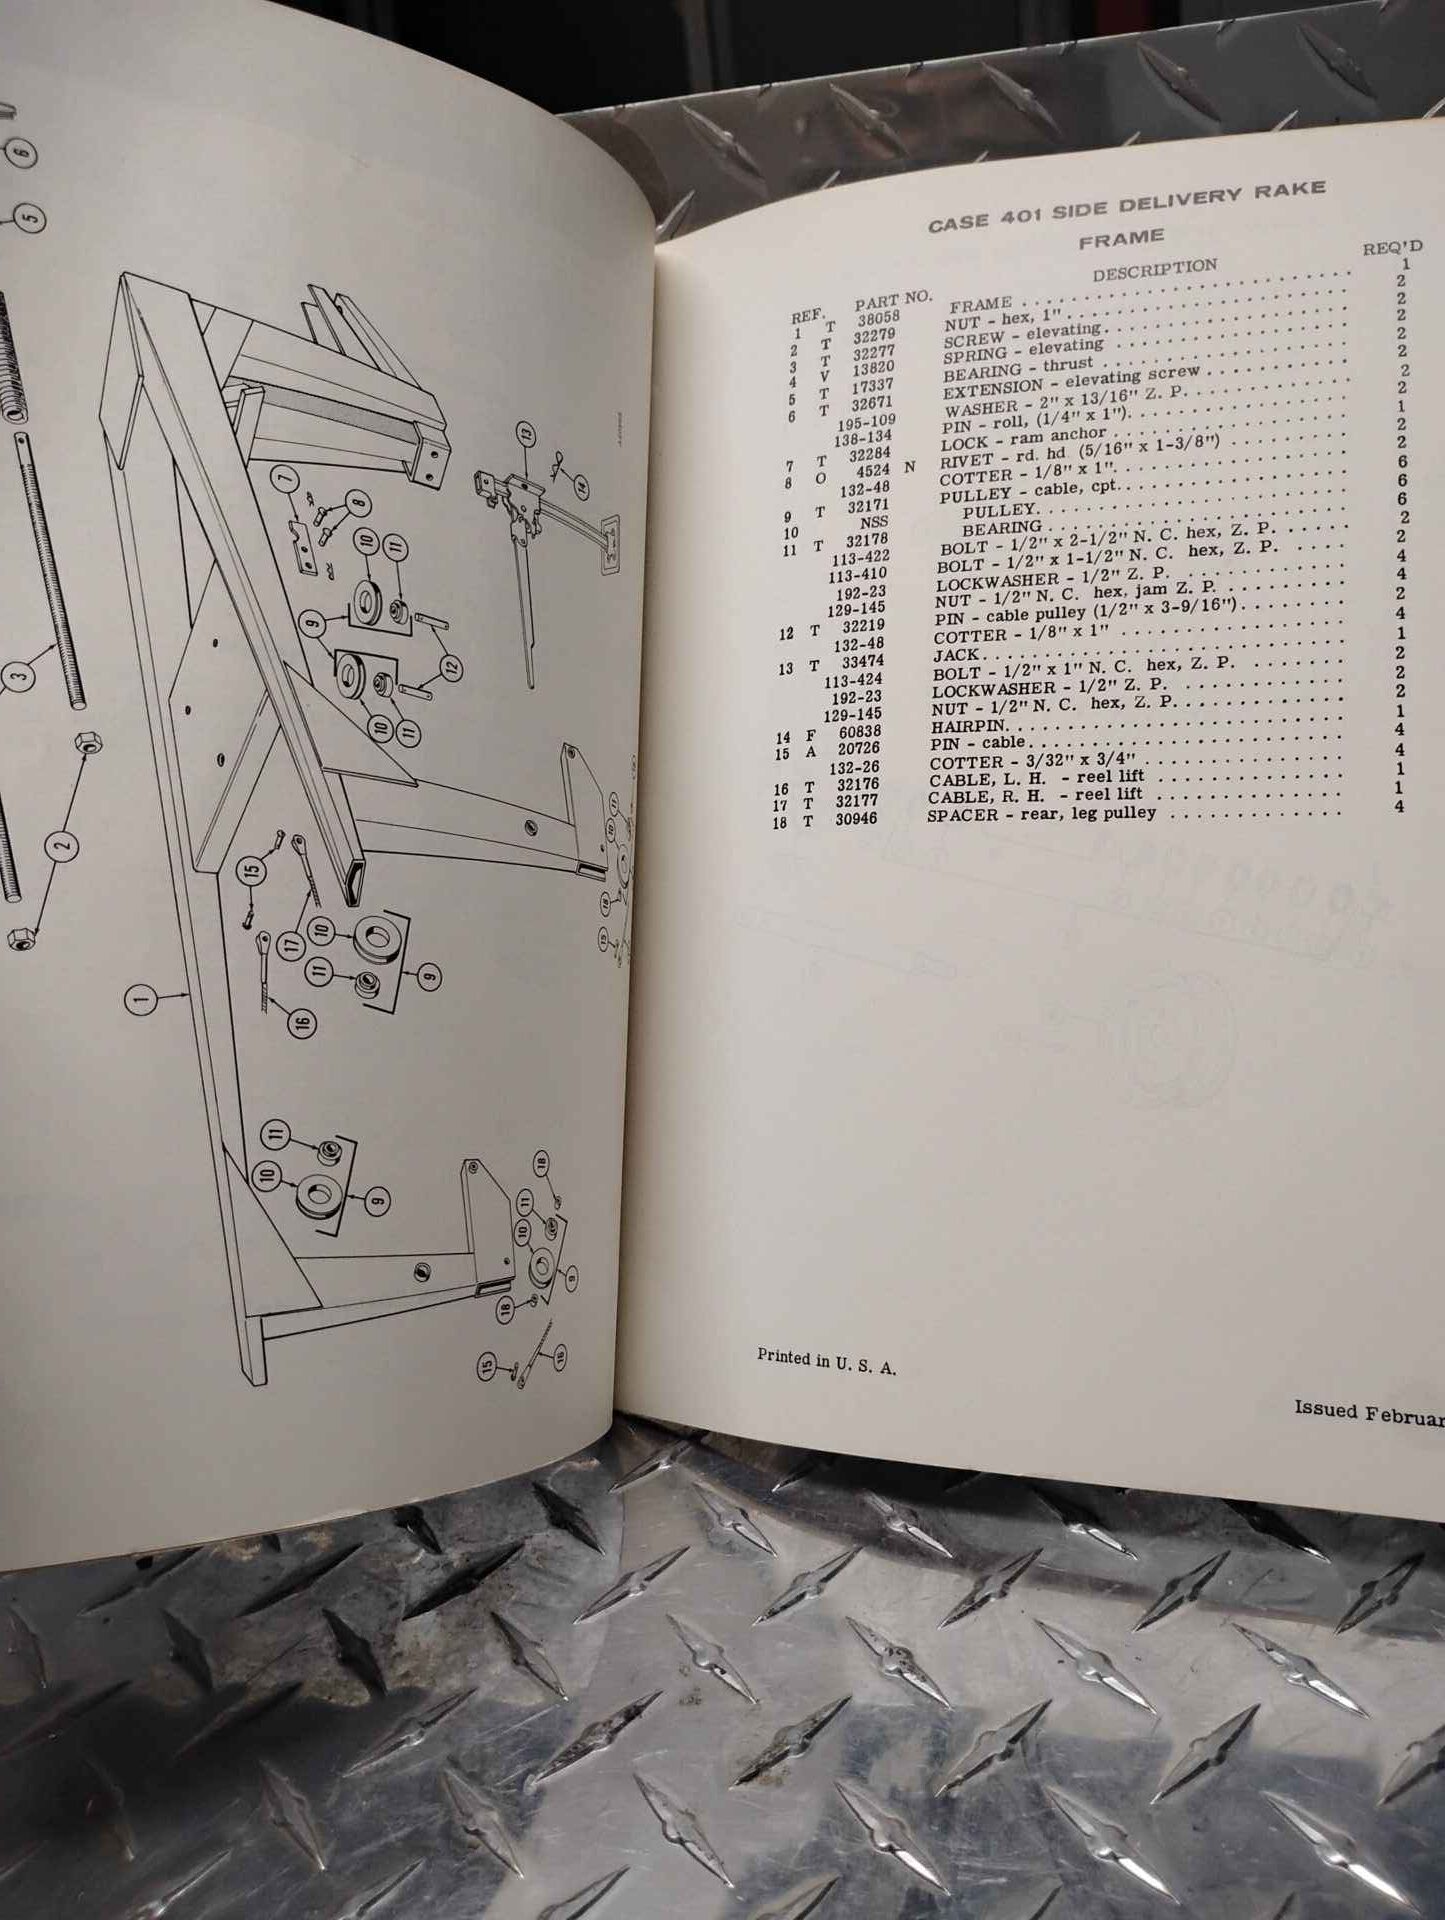 CASE 401 SIDE DELIVERY RAKE
FRAME
REF. PART NO. DESCRIPTION REQ'D
1 T 38058 FRAME 1
2 T 32279 NUT - hex, 1" 2
3 T 32277 SCREW - elevating 2
4 V 13820 SPRING - elevating 2
5 T 17337 BEARING - thrust 2
6 T 32671 EXTENSION - elevating screw 2
195-109 WASHER - 2" x 13/16" Z. P. 2
138-134 PIN - roll, (1/4" x 1") 2
7 T 32284 LOCK - ram anchor 1
8 O 4524 N RIVET - rd. hd (5/16" x 1-3/8") 2
132-48 COTTER - 1/8" x 1" 2
9 T 32171 PULLEY - cable, cpt. 6
10 NSS PULLEY 6
11 T 32178 BEARING 6
113-422 BOLT - 1/2" x 2-1/2" N. C. hex, Z. P. 2
113-410 BOLT - 1/2" x 1-1/2" N. C. hex, Z. P. 2
192-23 LOCKWASHER - 1/2" Z. P. 4
129-145 NUT - 1/2" N. C. hex, jam Z. P. 4
12 T 32219 PIN - cable pulley (1/2" x 3-9/16") 2
132-48 COTTER - 1/8" x 1" 4
13 T 33474 JACK 1
113-424 BOLT - 1/2" x 1" N. C. hex, Z. P. 2
192-23 LOCKWASHER - 1/2" Z. P. 2
129-145 NUT - 1/2" N. C. hex, Z. P. 2
14 F 60838 HAIRPIN 1
15 A 20726 PIN - cable 4
132-26 COTTER - 3/32" x 3/4" 4
16 T 32176 CABLE, L. H. - reel lift 1
17 T 32177 CABLE, R. H. - reel lift 1
18 T 30946 SPACER - rear, leg pulley 4
Printed in U. S. A.
Issued Februar
6
5
3
2
1
7
8
10
11
9
12
10
11
13
14
15
17
16
10
11
9
11
10
9
11
10
18
15
18
11
10
9
18
15
16